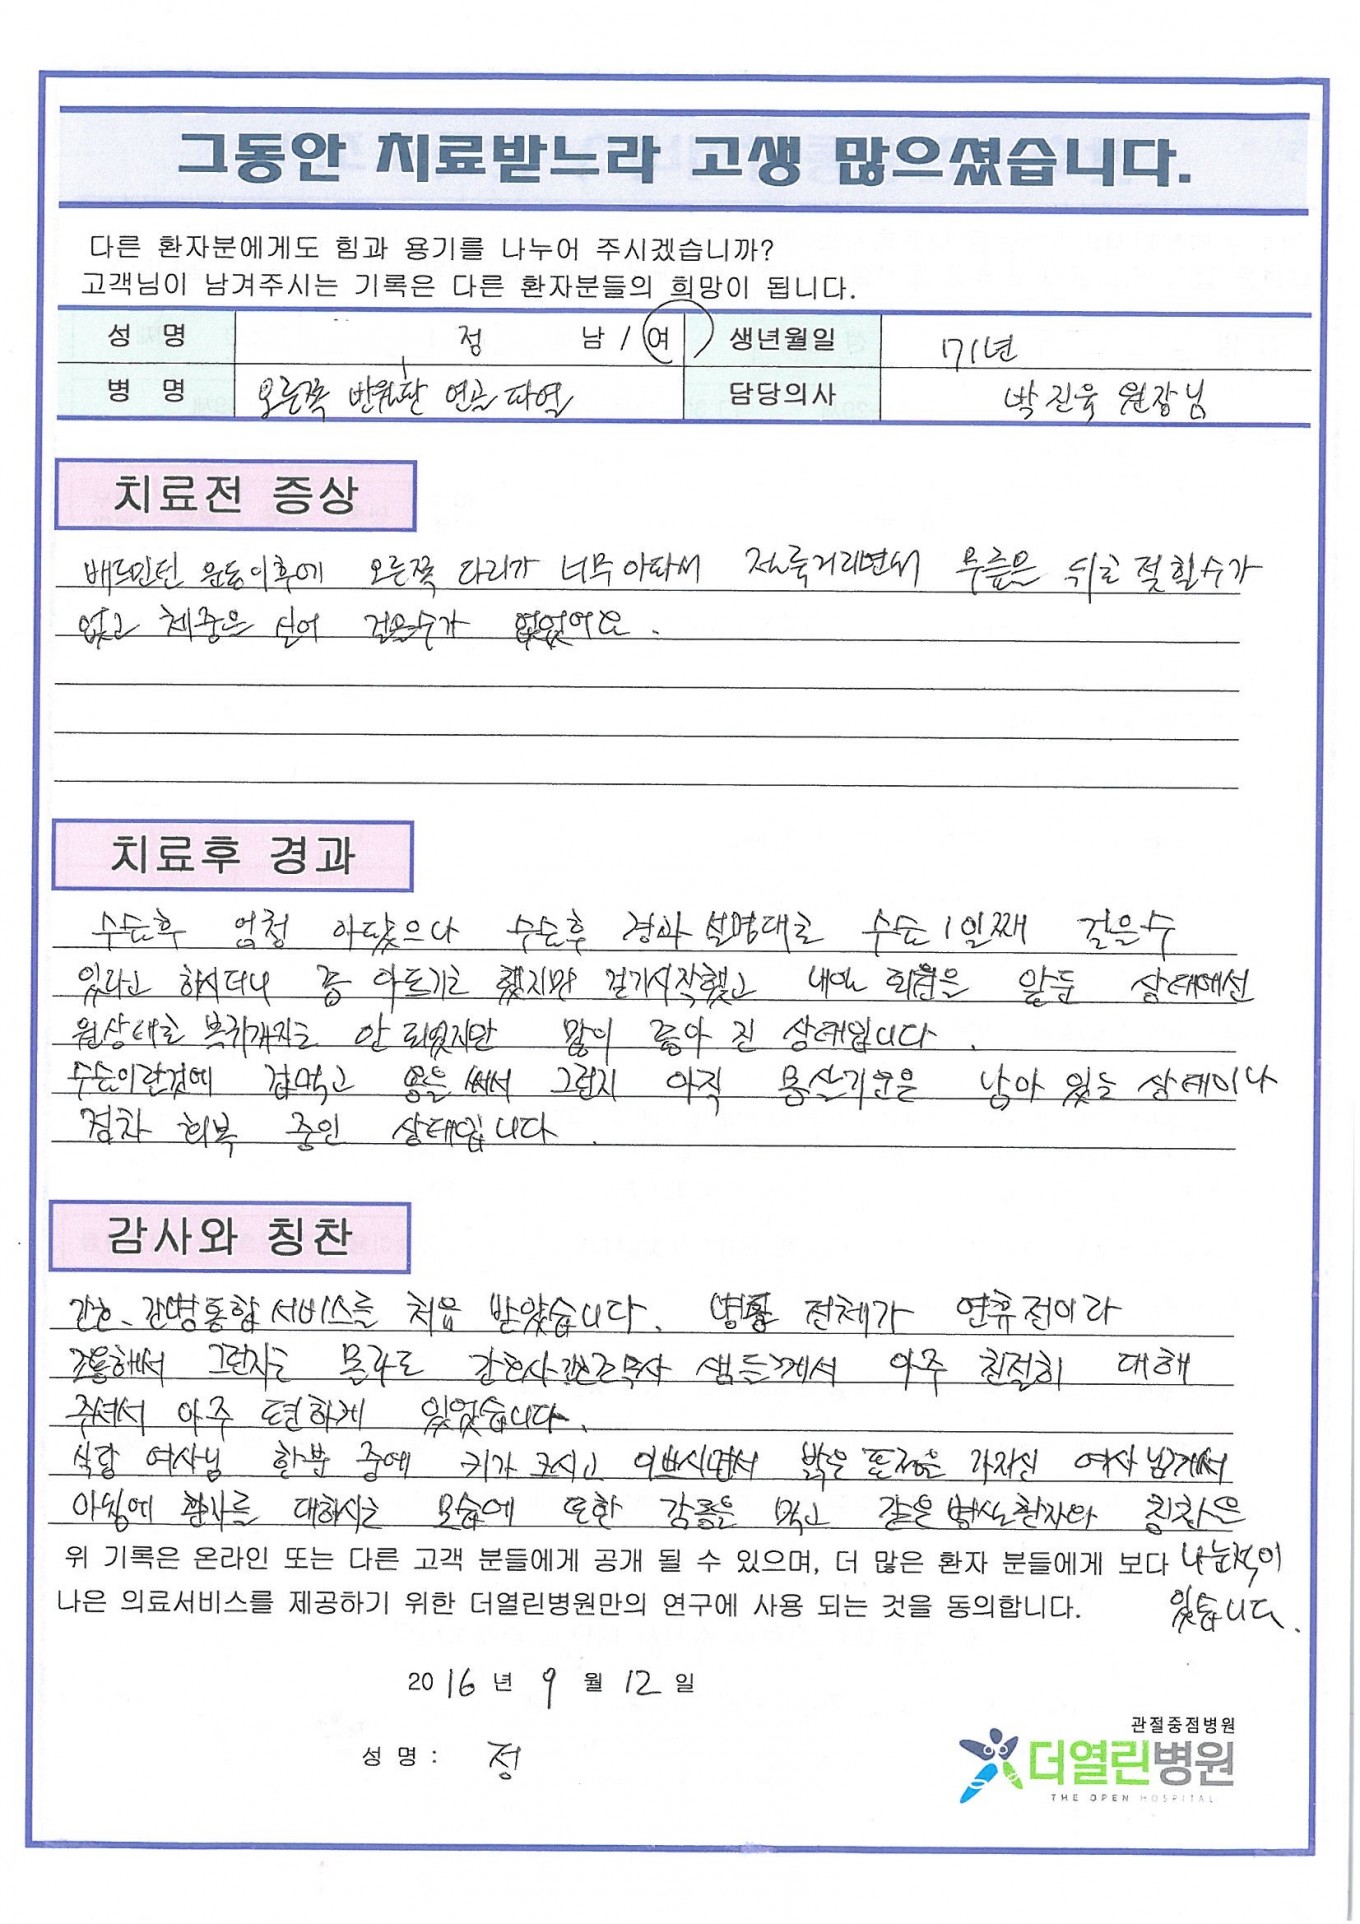 그동안 치료받느라 고생 많으셨습니다.
다른 환자분에게도 힘과 용기를 나누어 주시겠습니까?
고객님이 남겨주시는 기록은 다른 환자분들의 희망이 됩니다.
성 명 정 남 / 여 생년월일 71년
병 명 오른쪽 반월판 연골 파열 담당의사 박진욱 원장님
치료전 증상
배드민턴 운동이후에 오른쪽 다리가 너무아파서 절룩거리면서 무릎을 뒤로 젖힐수가
없고 체중을 실어 걸을수가 없었어요.
치료후 경과
수술후 엄청 아팠으나 수술후 경과 설명대로 수술 1일째 걸을수
있다고 하시더니 좀 아프기는 했지만 걷기시작했고 내일 퇴원을 앞둔 상태에선
원상태로 복귀까지는 안 되었지만 많이 좋아 진 상태입니다.
수술이란것에 겁먹고 용을 써서 그런지 아직 몸살기운은 남아 있는 상태이나
점차 회복 중인 상태입니다.
감사와 칭찬
간호、간병통합서비스를 처음 받았습니다. 병동 전체가 연휴전이라
조용해서 그런지는 몰라도 간호사·간호조무사 샘들께서 아주 친절히 대해
주셔서 아주 편하게 있었습니다.
식당 여사님 한분 중에 키가 크시고 이쁘시면서 밝은 표정을 가지신 여사님께서
아침에 환자를 대하시는 모습에 또한 감동을 먹고 같은 병실 환자와 칭찬을
위 기록은 온라인 또는 다른 고객 분들에게 공개 될 수 있으며, 더 많은 환자 분들에게 보다 나눈적이
나은 의료서비스를 제공하기 위한 더열린병원만의 연구에 사용 되는 것을 동의합니다. 있습니다.
2016 년 9 월 12 일
성 명 : 정
관절중점병원
더열린병원
THE OPEN HOSPITAL